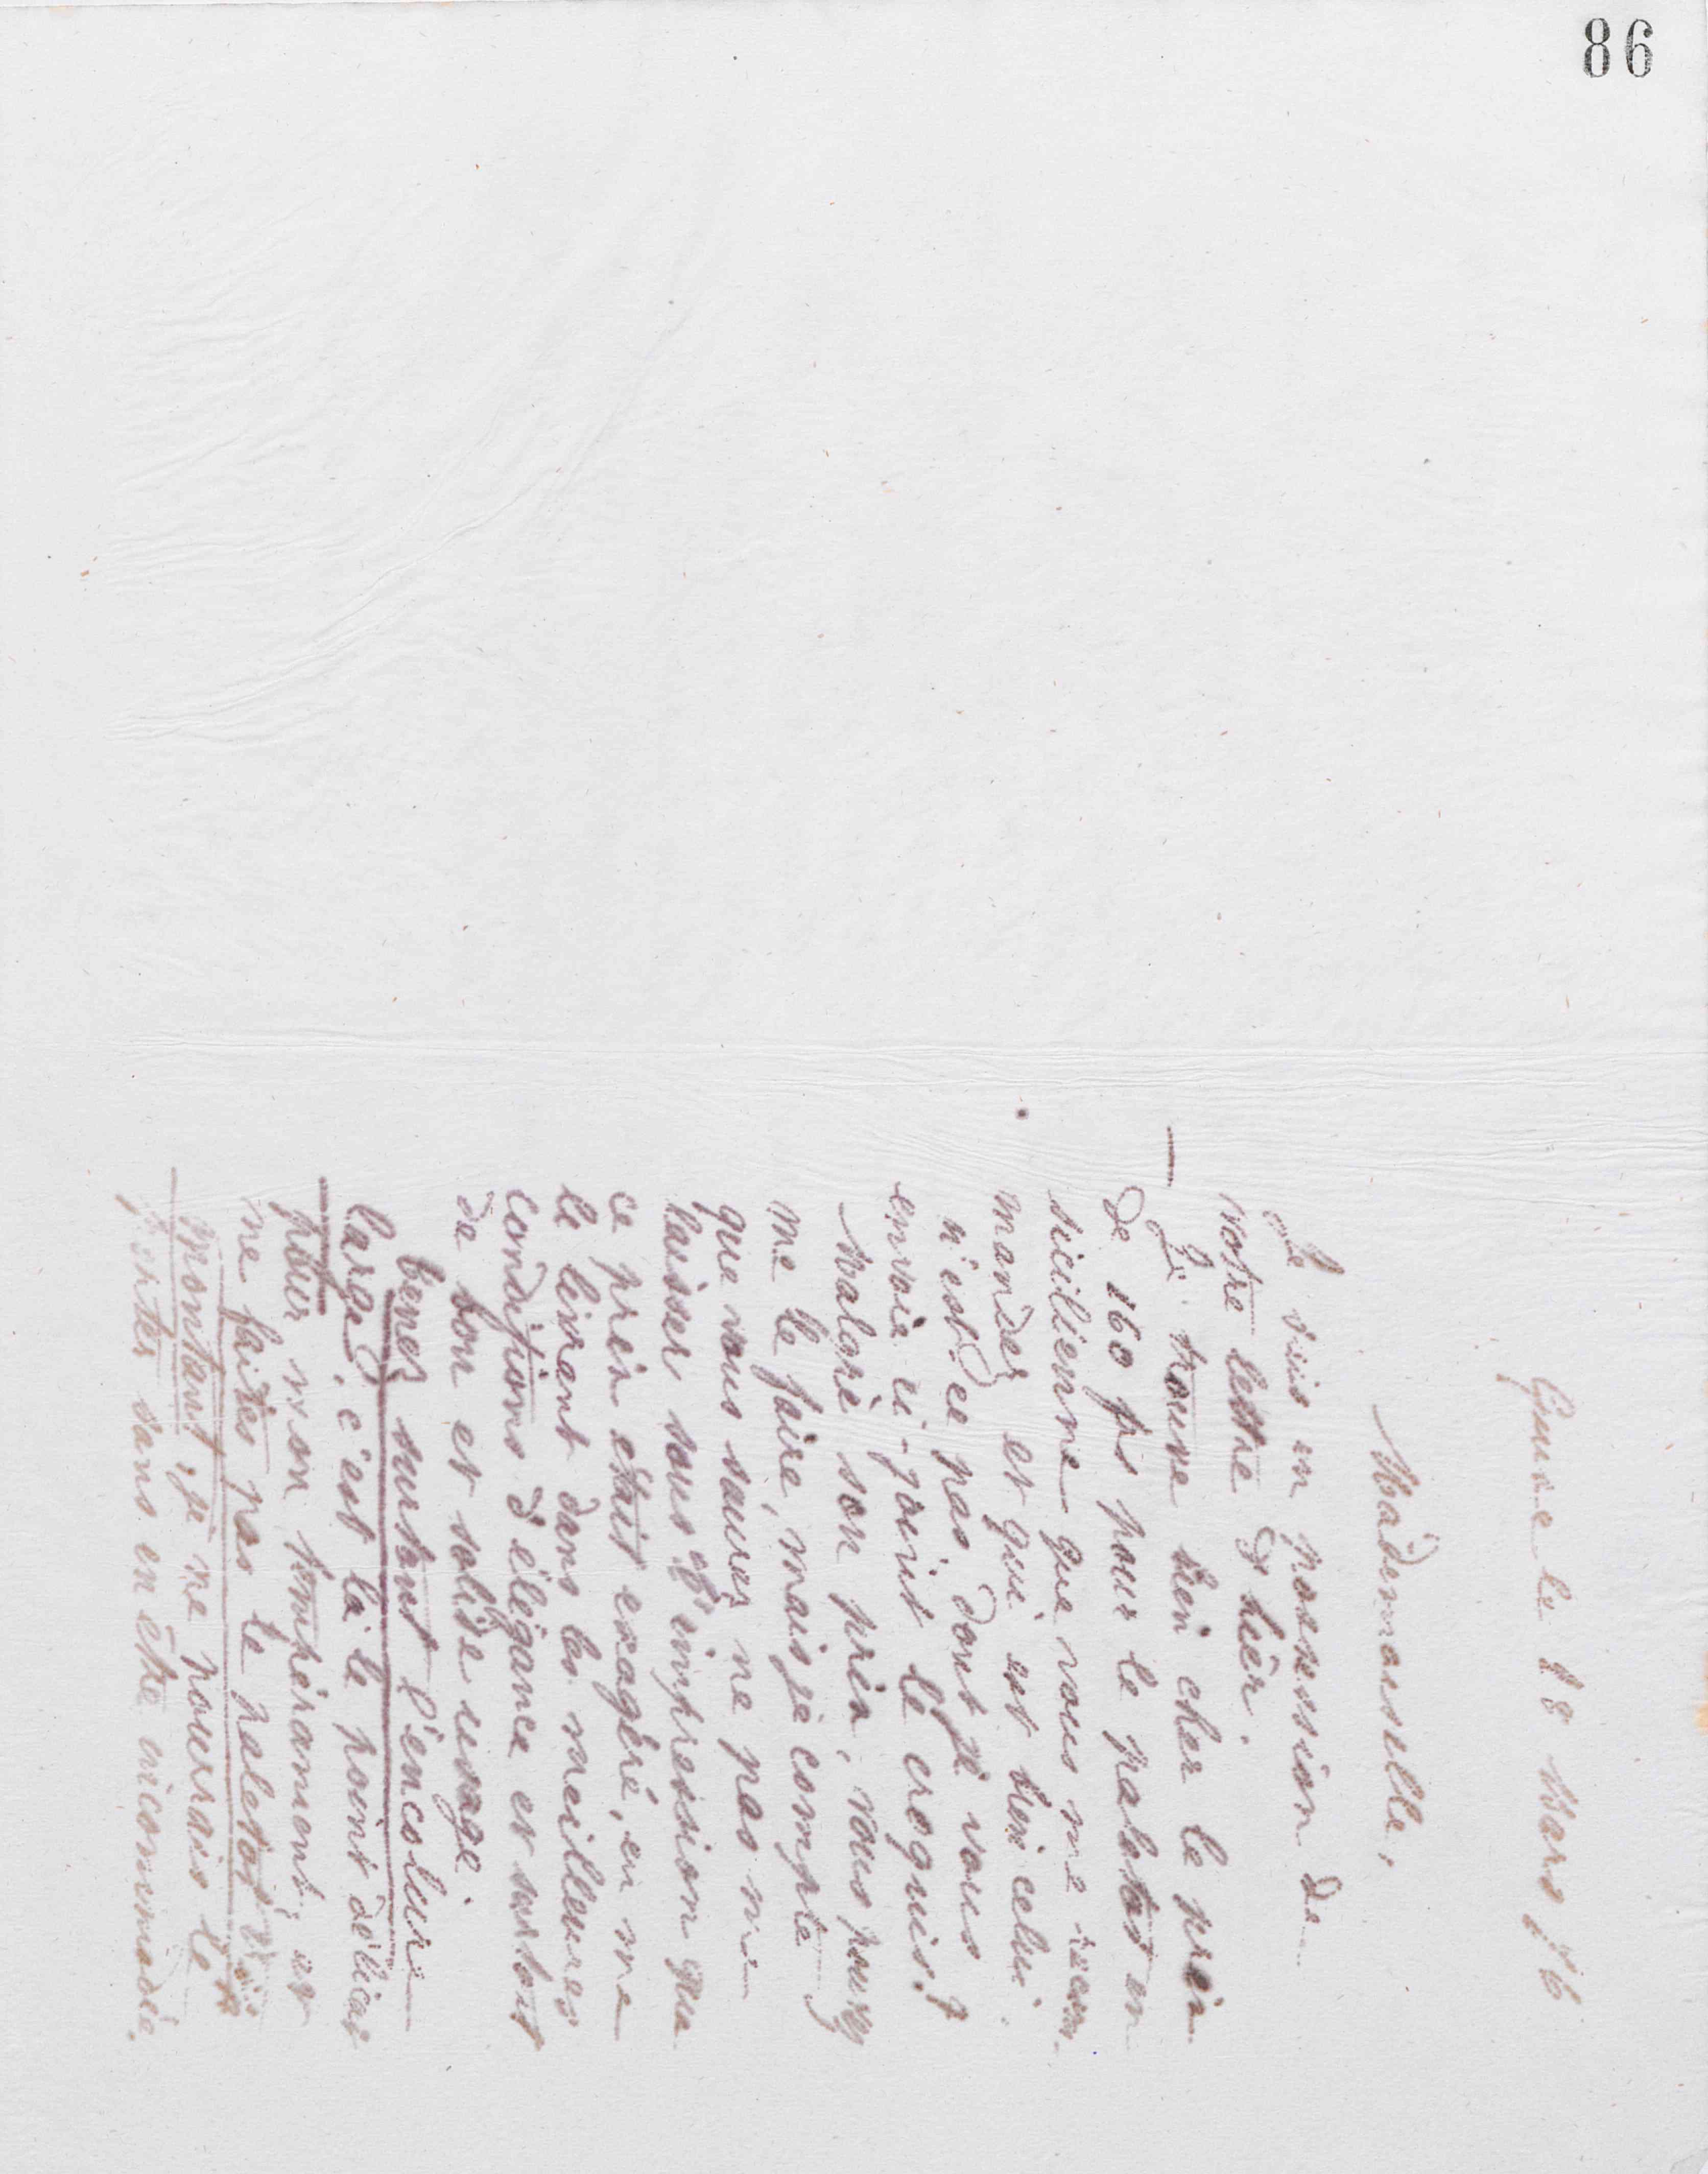 86
Guise le 28 Mars 76
Mademoiselle,
Je suis en possession de
votre lettre d'hier.
Je trouve bien cher le prix
de 160 fs pour le paletot en
sicilienne que vous me recom-
mandez et qui est bien celui,
n'est-ce pas, dont je vous
envoie ci-joint le croquis?
Malgré son prix, vous pouvez
me le faire, mais je compte
que vous saurez ne pas me
laisser sous l'impression que
ce prix était exagéré, en me
le livrant dans les meilleures
conditions d'élégance et surtout
de bon et solide usage.
Tenez surtout l'encolure
large, c'est là le point délicat
pour mon tempérament, et
ne faites pas le paletot
montant, je ne pourrais le
porter sans en être incommodée.